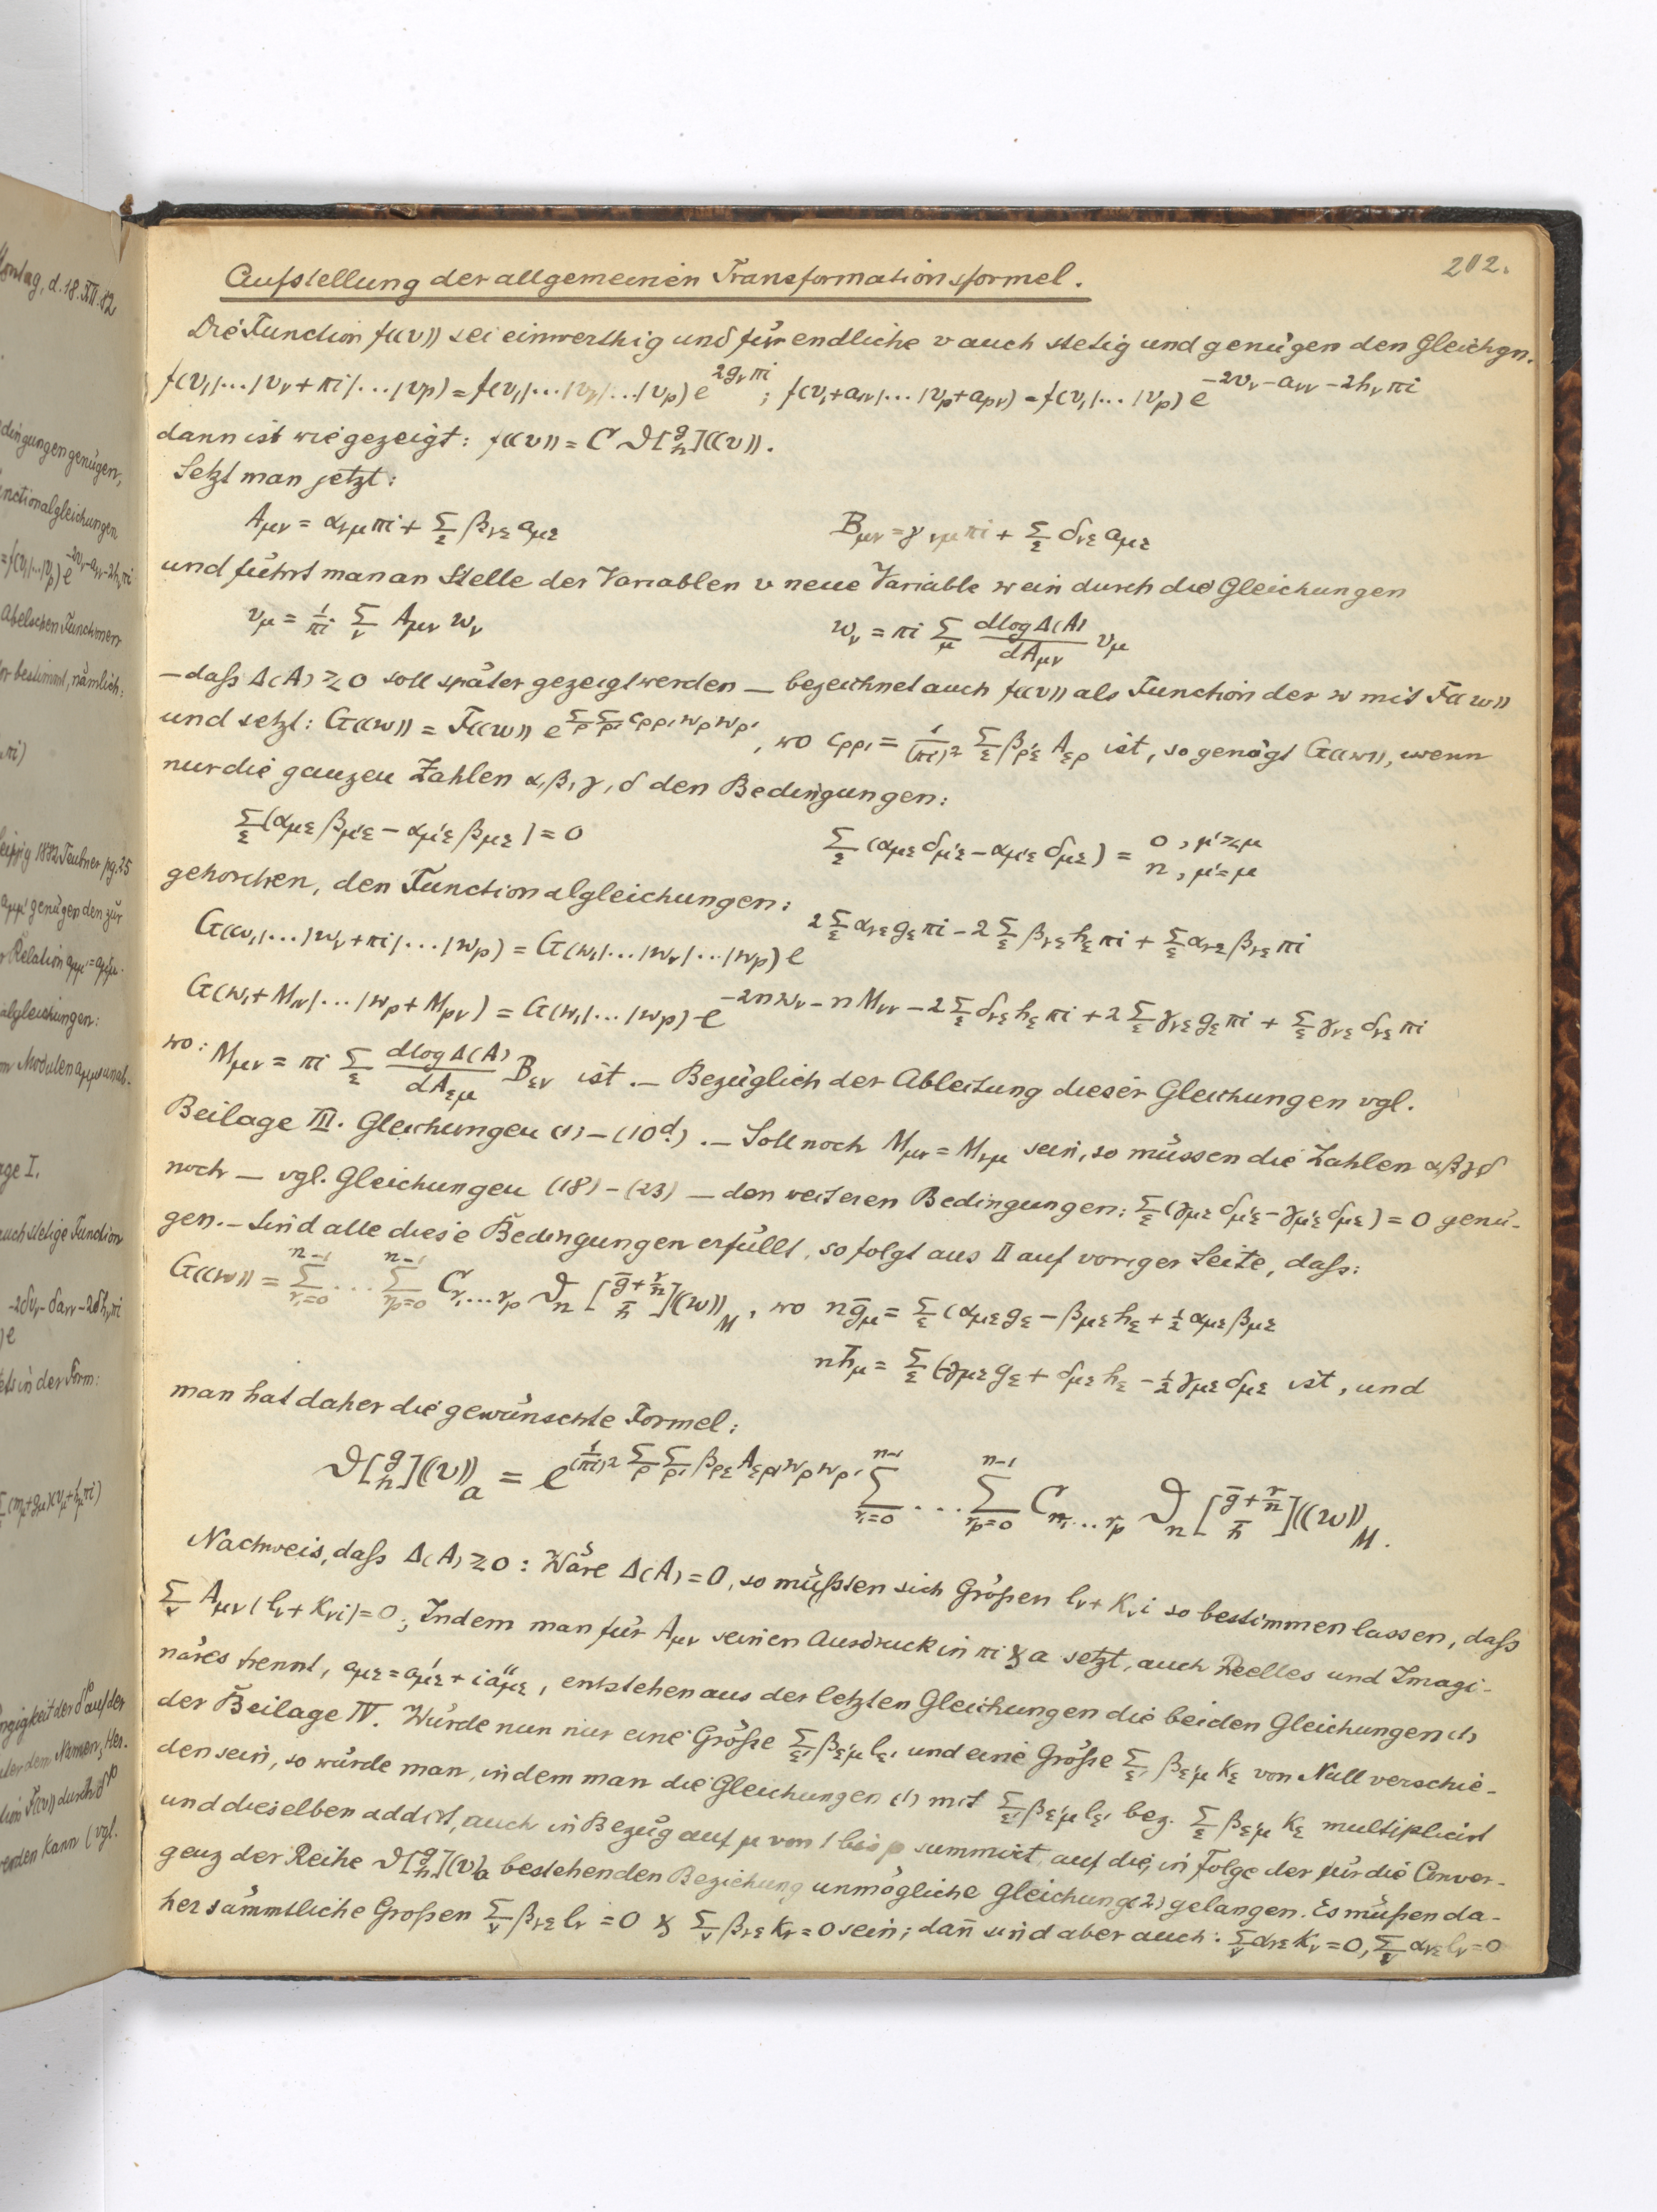 202.
Aufstellung der allgemeinen Transformationsformel.
Die Function f((v)) sei einwerthig und für endliche v auch stetig und genügen den Gleichgn.
f(v₁|...|vᵥ+πi|...|vₚ) = f(v₁|...|vᵥ|...|vₚ) e^{2gᵥπi} ; f(v₁+a₁ᵥ|...|vₚ+aₚᵥ) = f(v₁|...|vₚ) e^{-2vᵥ-aᵥᵥ-2hᵥπi}
dann ist wie gezeigt: f((v)) = C ϑ[g/h]((v)).
Setzt man jetzt:
A_{μν} = α_{νμ}πi + Σ_ε β_{νε} a_{με}   B_{μν} = γ_{νμ}πi + Σ_ε δ_{νε} a_{με}
und führt man an Stelle der Variablen v neue Variable w ein durch die Gleichungen
v_μ = 1/πi Σ_ν A_{μν} w_ν   w_ν = πi Σ_μ dlogΔ(A)/dA_{μν} v_μ
– daß Δ(A) ≷ 0 soll später gezeigt werden – bezeichnet auch f((v)) als Function der w mit F((w))
und setzt: G((w)) = F((w)) e^{Σ_ρ Σ_ρ' c_{ρρ'} w_ρ w_ρ'}, wo c_{ρρ'} = 1/(πi)² Σ_ε β_{ρ'ε} A_{ερ} ist, so genügt G((w)), wenn
nur die ganzen Zahlen α, β, γ, δ den Bedingungen:
Σ_ε (α_{με} β_{μ'ε} − α_{μ'ε} β_{με}) = 0   Σ_ε (α_{με} δ_{μ'ε} − α_{μ'ε} δ_{με}) = 0, μ' ≷ μ n, μ' = μ
gehorchen, den Functionalgleichungen:
G(w₁|...|w_ν+πi|...|w_p) = G(w₁|...|w_ν|...|w_p) e^{2Σ_ε α_{νε} g_ε πi − 2Σ_ε β_{νε} h_ε πi + Σ_ε α_{νε} β_{νε} πi}
G(w₁+M_{1ν}|...|w_p+M_{pν}) = G(w₁|...|w_p) e^{−2nw_ν − nM_{νν} − 2Σ_ε δ_{νε} h_ε πi + 2Σ_ε γ_{νε} g_ε πi + Σ_ε γ_{νε} δ_{νε} πi}
wo: M_{μν} = πi Σ_ε dlogΔ(A)/dA_{εμ} B_{εν} ist. – Bezüglich der Ableitung dieser Gleichungen vgl.
Beilage III. Gleichungen (1) – (10ᵈ). – Soll noch M_{μν} = M_{νμ} sein, so müssen die Zahlen αβγδ
noch – vgl. Gleichungen (18) – (23) – den weiteren Bedingungen: Σ_ε (γ_{με} δ_{μ'ε} − γ_{μ'ε} δ_{με}) = 0 genü-
gen. – Sind alle diese Bedingungen erfüllt, so folgt aus II auf voriger Seite, daß:
G((w)) = Σ_{r₁=0}^{n−1} ... Σ_{r_p=0}^{n−1} C_{r₁...r_p} ϑ_n [ḡ+r/n / h̄]((w))_M, wo nḡ_μ = Σ_ε (α_{με} g_ε − β_{με} h_ε + ½ α_{με} β_{με}
nh̄_μ = Σ_ε (−γ_{με} g_ε + δ_{με} h_ε − ½ γ_{με} δ_{με} ist, und
man hat daher die gewünschte Formel:
ϑ[g/h]((v))_a = e^{1/(πi)² Σ_ρ Σ_ρ' β_{ρε} A_{ερ'} w_ρ w_ρ'} Σ_{r₁=0}^{n−1} ... Σ_{r_p=0}^{n−1} C_{r₁...r_p} ϑ_n [ḡ+r/n / h̄]((w))_M.
Nachweis, daß Δ(A) ≷ 0: Wäre Δ(A) = 0, so müßten sich Größen l_ν + k_ν i so bestimmen lassen, daß
Σ_ν A_{μν} (l_ν + k_ν i) = 0; Indem man für A_{μν} seinen Ausdruck in πi & a setzt, auch Reelles und Imagi-
näres trennt, a_{με} = a'_{με} + i a''_{με}, entstehen aus der letzten Gleichungen die beiden Gleichungen (1)
der Beilage IV. Würde nun nur eine Größe Σ_ε' β_{ε'μ} l_ε' und eine Größe Σ_ε' β_{ε'μ} k_ε von Null verschie-
den sein, so würde man, indem man die Gleichungen (1) mit Σ_ε' β_{ε'μ} l_ε' bez. Σ_ε β_{ε'μ} k_ε multiplicirt
und dieselben addirt, auch in Bezug auf μ von 1 bis p summirt, auf die, in Folge der für die Conver-
genz der Reihe ϑ[g/h]((v))_a bestehenden Beziehung unmögliche Gleichung (2) gelangen. Es müßen da-
her sämmtliche Großen Σ_ν β_{νε} l_ν = 0 & Σ_ν β_{νε} k_ν = 0 sein; dan̄ sind aber auch: Σ_ν α_{νε} k_ν = 0, Σ_ν α_{νε} l_ν = 0